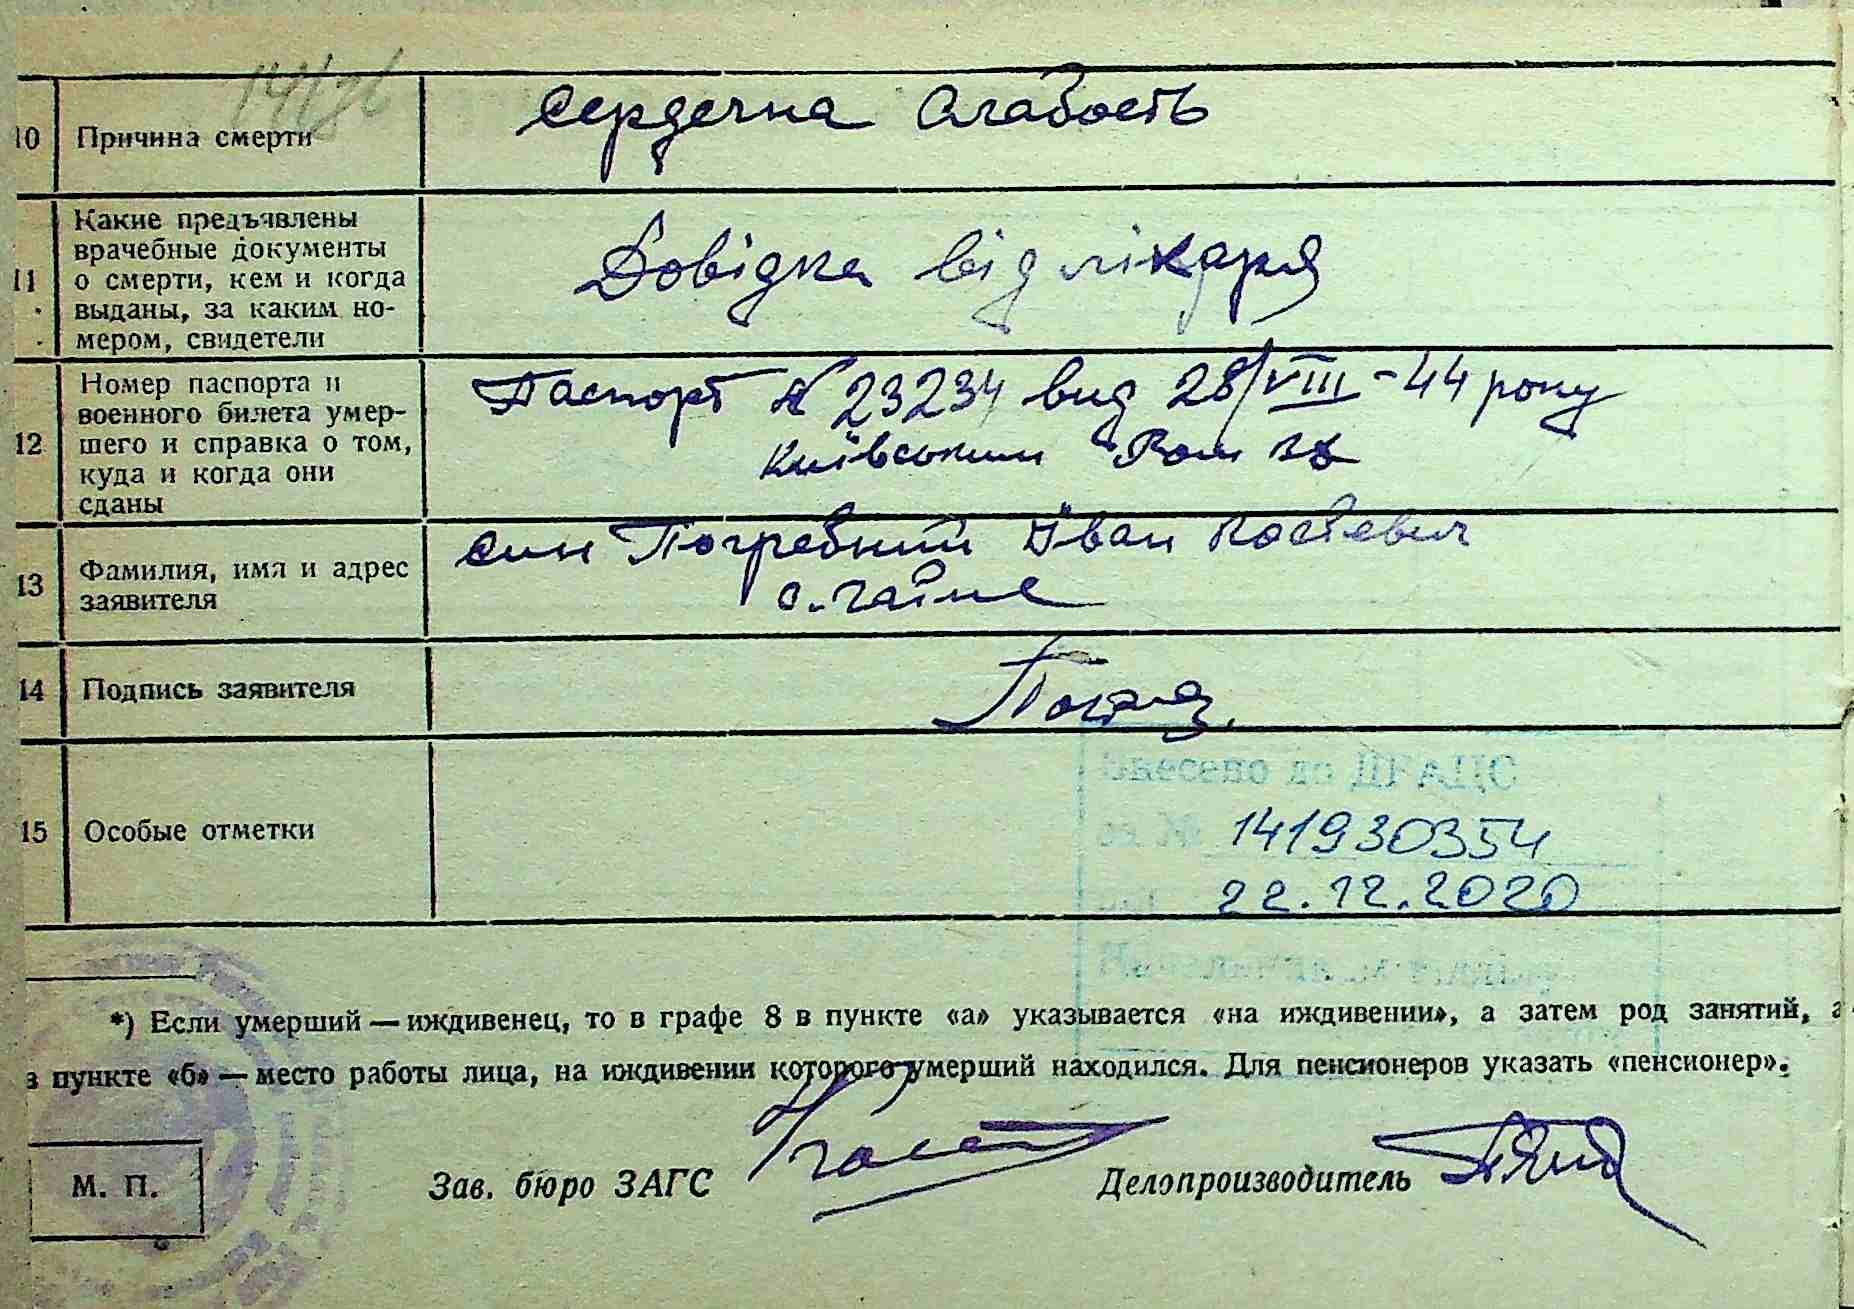 10 Причина смерти
Сердечна слабость
11 Какие предъявлены
врачебные документы
о смерти, кем и когда
выданы, за каким но-
мером, свидетели
Довідка від лікаря
12 Номер паспорта и
военного билета умер-
шего и справка о том,
куда и когда они
сданы
Паспорт № 23234 вид 28/VIII-44 року
Київським
13 Фамилия, имя и адрес
заявителя
син Погребний Іван
с.
14 Подпись заявителя
15 Особые отметки
Внесено до ДРАЦС
за № 141930354
22.12.2020
*) Если умерший — иждивенец, то в графе 8 в пункте «а» указывается «на иждивении», а затем род занятий, а
в пункте «б» — место работы лица, на иждивении которого умерший находился. Для пенсионеров указать «пенсионер».
М. П.
Зав. бюро ЗАГС
Делопроизводитель